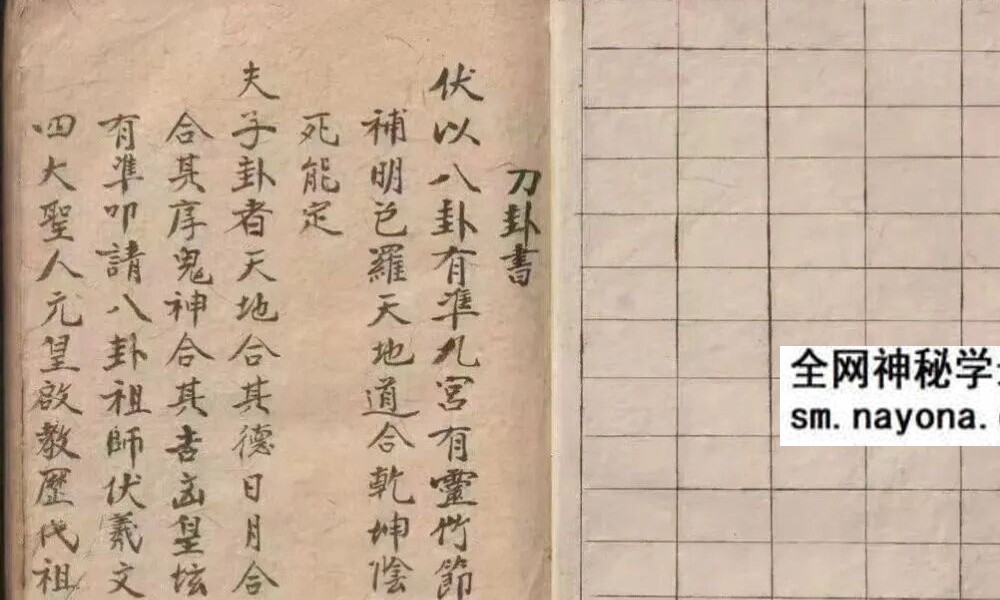 刀卦書
伏以八卦有準九宮有靈竹節
補明包羅天地道合乾坤陰
死能定
夫子卦者天地合其德日月合
合其序鬼神合其吉凶皇壇
有準叩請八卦祖師伏羲文
四大聖人元皇啟教歷代祖
全网神秘学
sm.nayona.